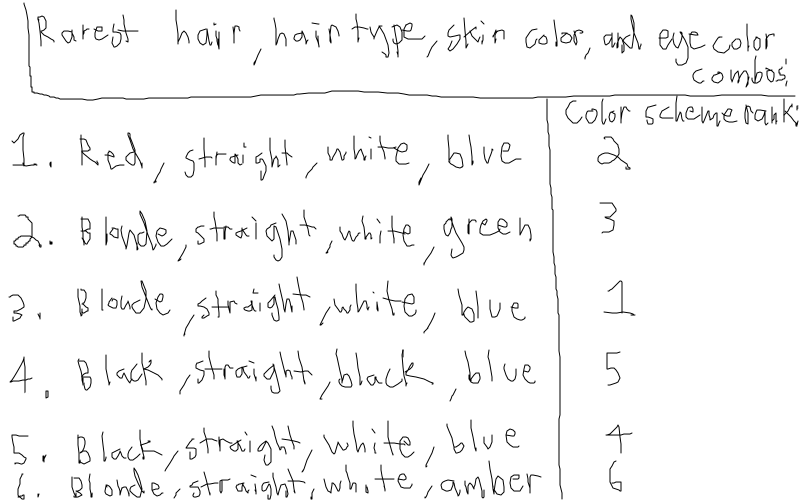 Rarest hair, hair type, skin color, and eye color
combos:
Color scheme rank:
1. Red, straight, white, blue 2
2. Blonde, straight, white, green 3
3. Blonde, straight, white, blue 1
4. Black, straight, black, blue 5
5. Black, straight, white, blue 4
6. Blonde, straight, white, amber 6